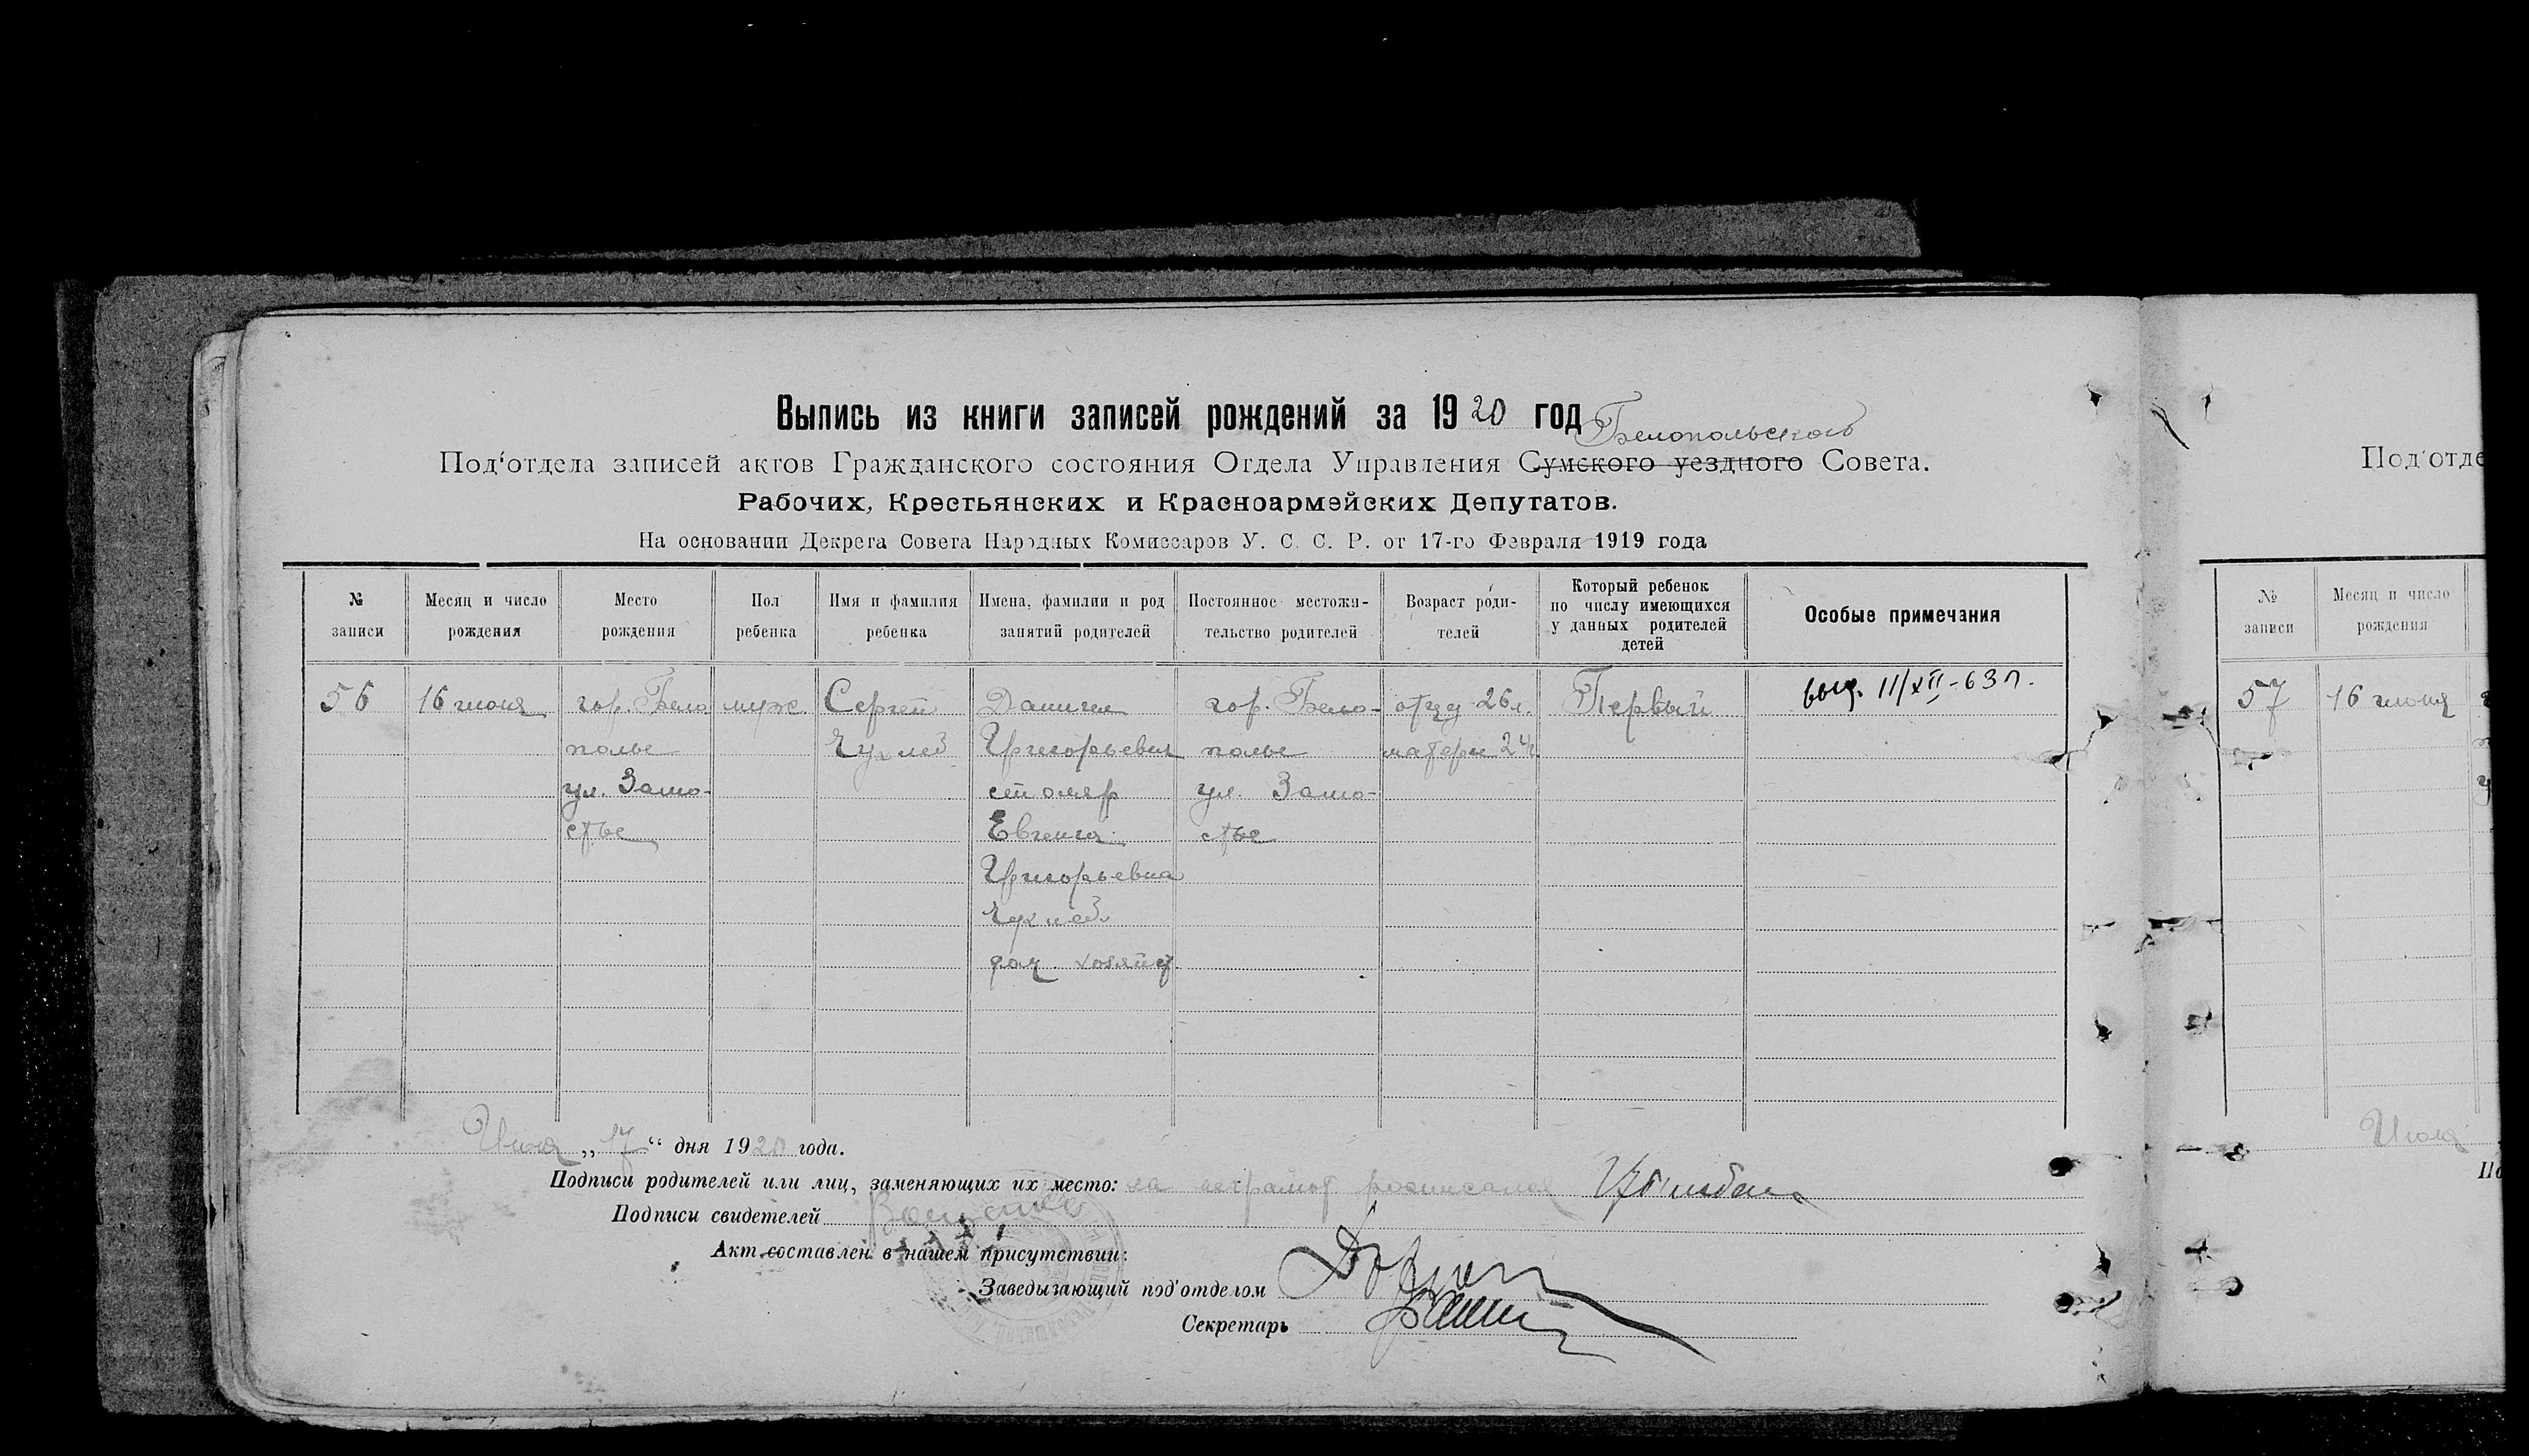 Выпись из книги записей рождений за 1920 год
Белопольского
Под'отдела записей актов Гражданского состояния Отдела Управления Сумского уездного Совета.
Рабочих, Крестьянских и Красноармейских Депутатов.
На основании Декрета Совета Народных Комиссаров У. С. С. Р. от 17-го Февраля 1919 года
№ записи
Месяц и число рождения
Место рождения
Пол ребенка
Имя и фамилия ребенка
Имена, фамилии и род занятий родителей
Постоянное местожительство родителей
Возраст родителей
Который ребенок по числу имеющихся у данных родителей детей
Особые примечания
56
16 июня
гор. Бело
полье
ул. Замо-
стье
муж
Сергей
Даниил
Григорьевич
столяр
Евгения
Григорьевна
дом. хозяйст
гор. Бело-
полье
ул. Замо-
стье
отцу 26 л.
матери 24 г
Первый
выд. 11/XII-63 г.
Июня „17“ дня 1920 года.
Подписи родителей или лиц, заменяющих их место: за неграмот росписался
Подписи свидетелей
Акт составлен в нашем присутствии:
Заведызающий под'отделом
Секретарь
Под'отде
№ записи
Месяц и число рождения
57
16 июня
Июня
По